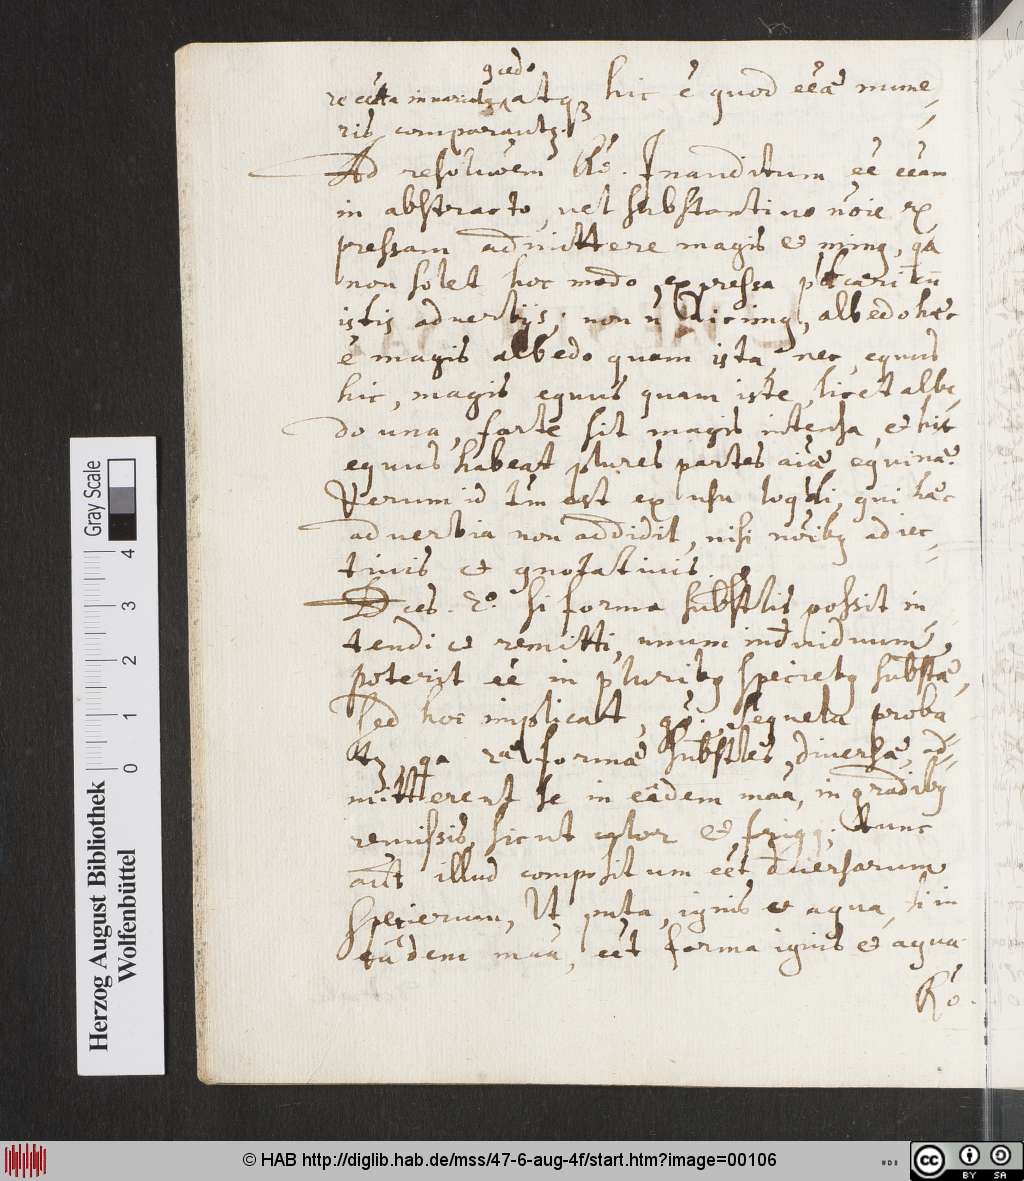 concedo
re certa inuariatr, atq; hic ē quod eēā nume
ris comparantr.
Ad resoluōem Rō. Inauditum eē eēam
in abstracto, vel substantiuo nōie ex
pressam admittere magis et minq, qā
non solet hoc modo expressa cū
istis aduerbijs; non n̄ dicimq, albedo hæc
ē magis albedo quam ista, nec, equus
hic, magis equus quam iste, licet albe
do una, forte sit magis intensa, et hic
equus habeat plures partes aīæ equinæ.
Verum id tm̄ est ex usu loqdi, qui hæc
aduerbia non addidit, nisi nōibq adiec
tiuis et 9notatiuis.
Dces. 2º. si forma substlis possit in
tendi et remitti, unum indiuiduum
poterit eē in pluribq speciebq substæ,
sed hoc implicat, gō. sequela proba
tr, qa formæ substles, diuersæ, ad
mitterent se in eādem māa, in gradibq
remissis, sicut calor et frigq; tunc
aut illud compositum eēt diuersarum
specierum, Ut puta, ignis et aqua, si in
eādem māa, eēt forma ignis et aqua.
Rō.
Herzog August Bibliothek
Wolfenbüttel
Gray Scale
0 1 2 3 4
© HAB http://diglib.hab.de/mss/47-6-aug-4f/start.htm?image=00106
cc BY SA